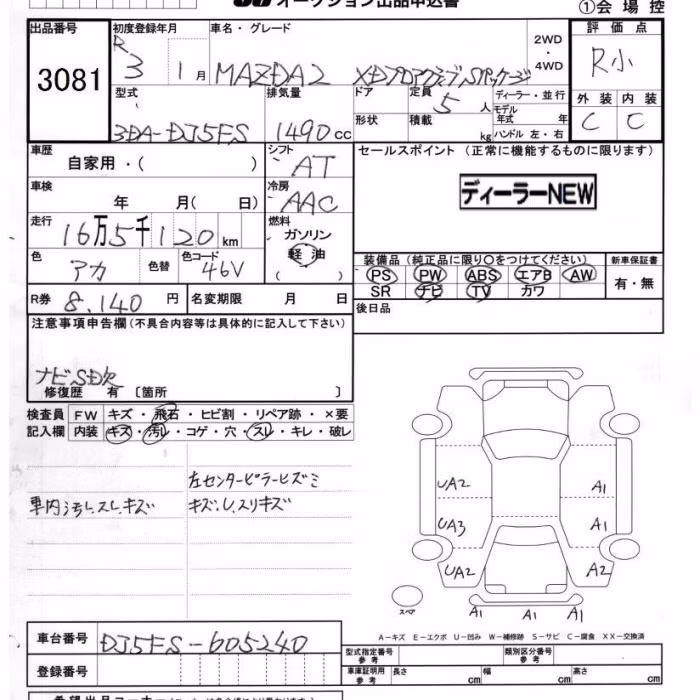 オークション出品申込書
①会場控
出品番号 初度登録年月 車名・グレード 評価点
3081 R 3 1月 MAZDA2 XDプロアクティブSパッケージ 2WD・4WD R小
型式 排気量 ドア 定員 5人 ディーラー・並行 外装 内装
3DA-DJ5FS 1490cc 形状 積載 kg モデル年式 年 ハンドル 左・右 C C
車歴 自家用・( ) シフト AT セールスポイント (正常に機能するものに限ります)
車検 年 月( 日) 冷房 AAC ディーラーNEW
走行 16万5千120km 燃料 ガソリン 軽油 ( )
色 アカ 色替 色コード 46V 装備品 (純正品に限り○をつけてください) 新車保証書
PS PW ABS エアB AW 有・無
SR ナビ TV カワ
R券 8,140円 名変期限 月 日 後日品
注意事項申告欄(不具合内容等は具体的に記入して下さい)
ナビSD欠
修復歴 有 〔箇所 〕
検査員 FW キズ・飛石・ヒビ割・リペア跡・×要
記入欄 内装 キズ・汚レ・コゲ・穴・スレ・キレ・破レ
左センターピラーヒズミ
車内汚レ、スレ、キズ キズ、U、スリキズ
UA2 A1
UA3 A1
UA2 A2
スペア A1 A1 A1
A-キズ E-エクボ U-凹み W-補修跡 S-サビ C-腐食 XX-交換済
車台番号 DJ5FS-605240
型式指定番号 参考 類別区分番号 参考
登録番号 車庫証明用 参考 長さ cm 幅 cm 高さ cm
希望出品コーナー